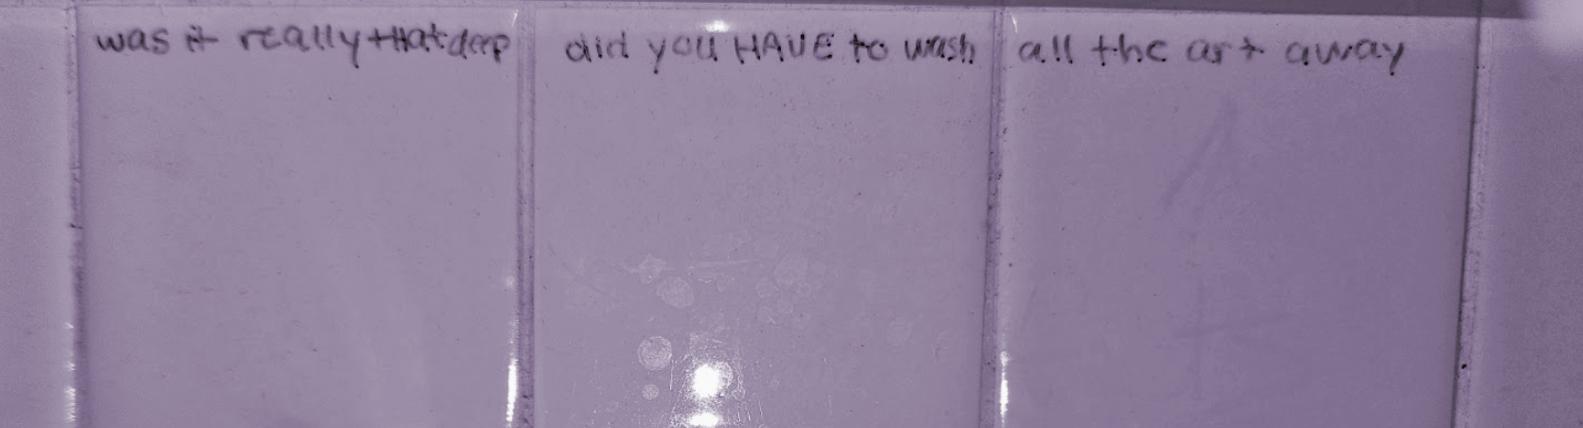 was it really that deep did you HAVE to wash all the art away